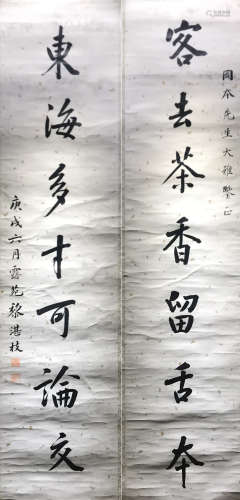 同本先生大雅鑒正
客去茶香留舌本
東海多才可論交
庚戌六月露苑黎湛枝